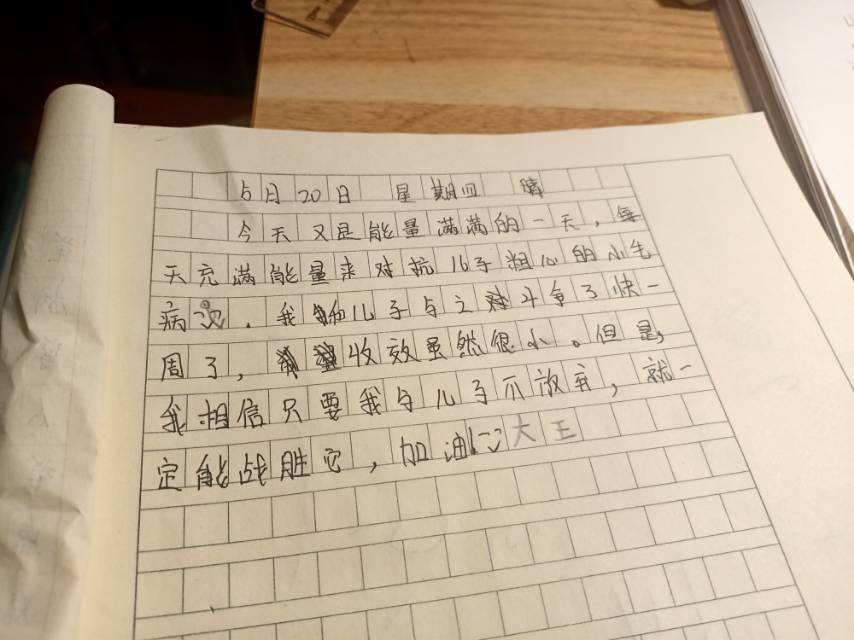 5月20日 星期四 晴
今天又是能量满满的一天，每
天充满能量来对抗儿子粗心的小毛
病。我和儿子与之斗争了快一
周了，收效虽然很小。但是，
我相信只要我与儿子不放弃，就一
定能战胜它，加油！大王